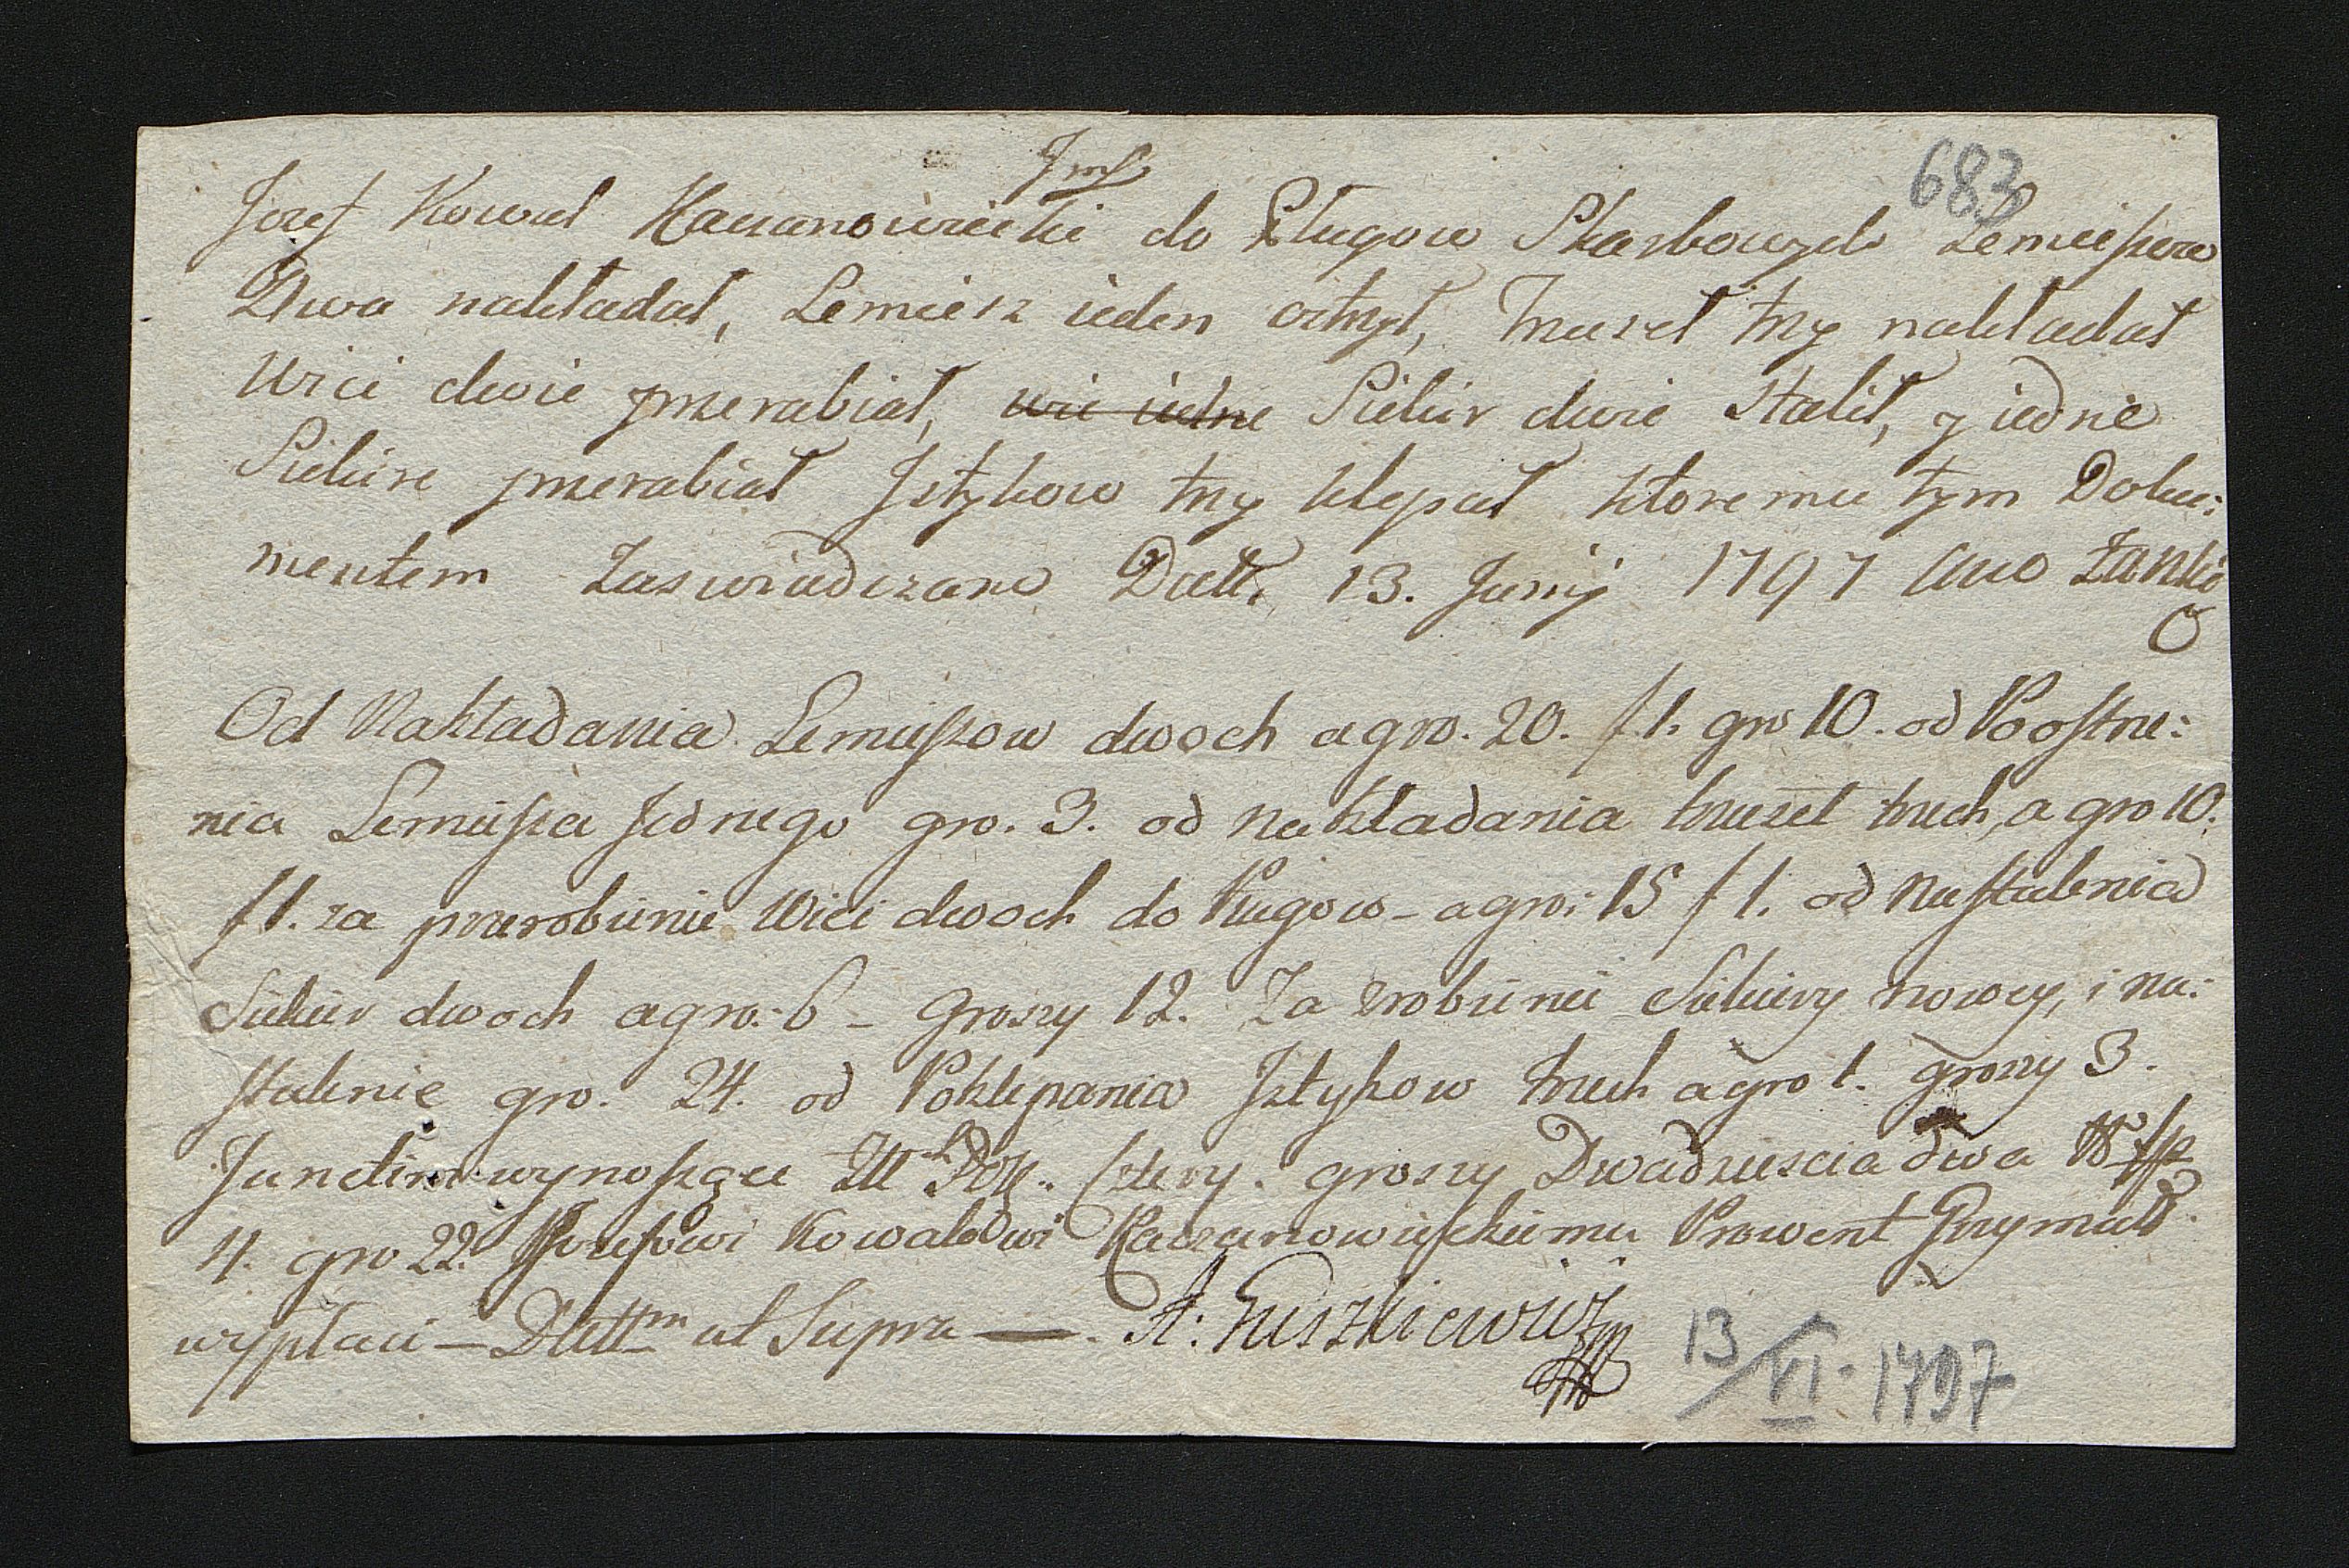 683
Jmſ
Jozef Kowal Kaczanowiecki do Pługow Skarbowych Lemieſzow
Dwa nakładał, Lemiesz ieden ostrzył, trusel trzy nakładał
Wici dwie przerabiał, wic iedne Siekir dwie stalił, y iedne
Siekire przerabiał Jstykow trzy klepał ktoremu tym Doku:
mentem zaswiadczam Datt. 13. Junij 1797 Ano
Od Nakładania Lemieſzow dwoch a gro. 20. f 1. gro 10. od Pooſtrze:
nia Lemieſza Jednego gro. 3. od nakładania trusel trzech, a gro 10.
f 1. za przerobienie Wici dwoch do Pługow - a gro: 15 f 1. od naſtalenia
Siekier dwoch a gro: 6 - groszy 12. Za zrobienie Siekiery nowey, i na:
ſtalenie gro. 24. od Poklepania Jstykow trzech a gro 1. groszy 3.
Junctim wynoſzące Złł Pol: Cztery. groszy Dwadziescia dwa
4. gro 22. Jozefowi Kowalowi Kaczanowieſkiemu Prowent Grzymał:
wypłaci — Datt ut Supra —
13/VI. 1797